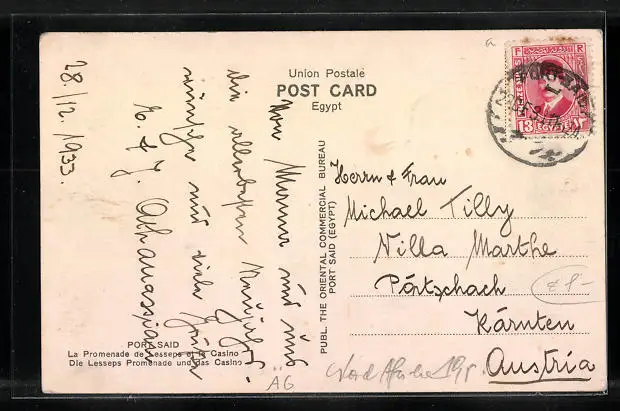 Union Postale
POST CARD
Egypt
28/12. 1933.
Von Mama und mir
die allerbesten
wünsche und viele Grüße
E. & J. Athanassian
Herrn & Frau
Michael Tilly
Villa Marthe
Pörtschach
Kärnten
Austria
PUBL. THE ORIENTAL COMMERCIAL BUREAU
PORT SAID (EGYPT)
PORT SAID
La Promenade de Lesseps et le Casino
Die Lesseps Promenade und das Casino
a
F R
13
EGYPTE
ÄG